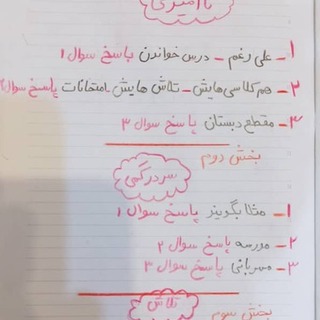 ناامیدی
۱- علی رغم - درس خواندن پاسخ سوال ۱
۲- هم کلاسی هایش - تلاش هایش - امتحانات پاسخ سوال ۲
۳- مقطع دبستان پاسخ سوال ۳
بخش دوم
سردرگمی
۱- مثلا بگویند پاسخ سوال ۱
۲- مدرسه پاسخ سوال ۲
۳- مهربانی پاسخ سوال ۳
تلاش
بخش سوم